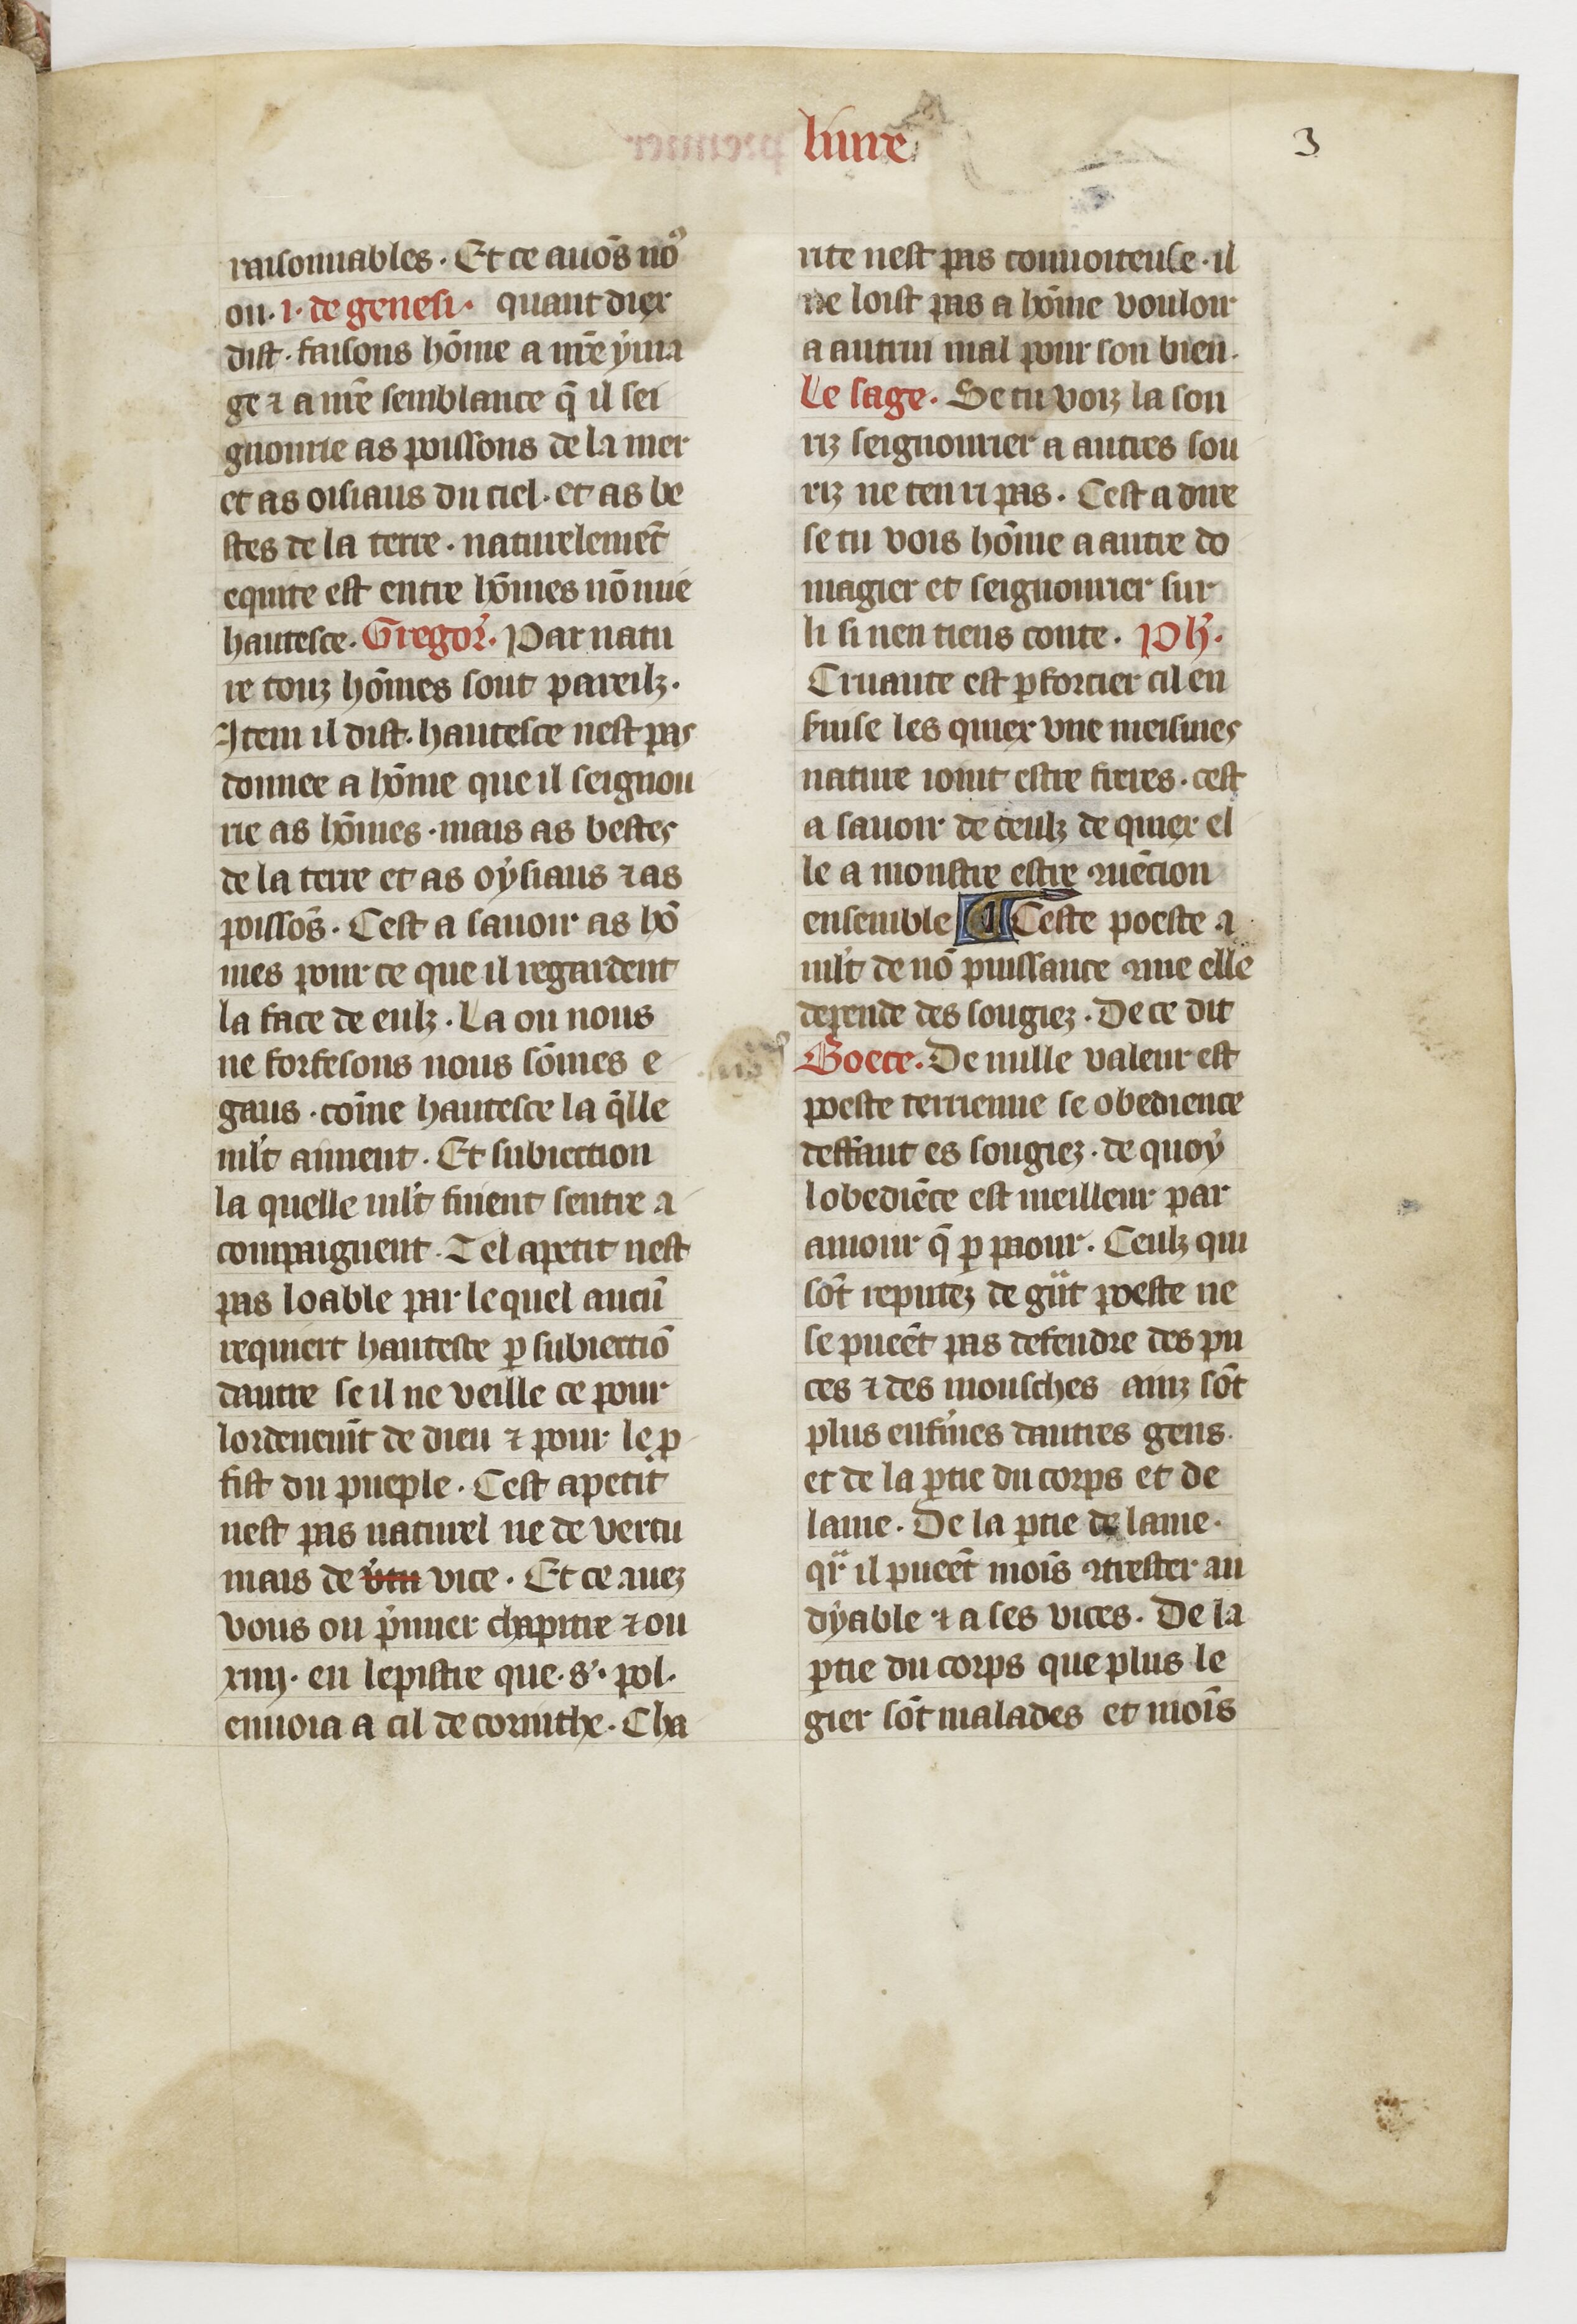 liure
3
raisonnables. Et ce auōs noꝰ
ou. i. de genesi. quant diex
dist. faisons hōme a nr̄e yma
ge ⁊ a nr̄e semblance q̄ il sei
gnourie as poissons de la mer
et as oisiaus du ciel. et as be
stes de la terre. naturelemēt
equite est entre hōmes nō nue
hautesce. Gregor̄. Par natu
re touz hōmes sont pareilz.
Item il dist. hautesce nest pas
donnee a hōme que il seignou
rie as hōmes. mais as bestes
de la terre et as oysiaus ⁊ as
poissōs. Cest a sauoir as hō
mes pour ce que il regardent
la face de eulz. La ou nous
ne forfesons nous sōmes e
gaus. cōme hautesce la q̄lle
ml't aiment. Et subiection
la quelle ml't fuient sentre a
compaignent. Tel apetit nest
pas loable par lequel aucū
requiert hautesce ꝑ subiectiō
dautre se il ne veille ce pour
lordenem̄t de dieu ⁊ pour le ꝓ
fist du pueple. Cest apetit
nest pas naturel ne de vertu
mais de v̄tu vice. Et ce auez
vous ou p̄mier chapitre ⁊ ou
xiiij. en lepistre que. s'. pol.
enuoia a cil de corinthe. Cha
rite nest pas conuoiteuse. il
ne loist pas a hōme vouloir
a autrui mal pour son bien.
Le sage. Se tu voiz la sou
riz seignourier a autres sou
riz ne ten ri pas. Cest a dire
se tu vois hōme a autre do
magier et seignourier sur
li si nen tiens conte. Ph̄.
Cruaute est ꝑforcier cil en
fuise les quiex vne meismes
nature iount estre freres. cest
a sauoir de ceulz de quiex el
le a monstre estre ꝯuēcion
ensemble ¶ Ceste poeste a
ml't de nō puissance ꝯme elle
depende des sougiez. De ce dit
Boece. De nulle valeur est
poeste terrienne se obedience
deffaut es sougiez. de quoy
lobediēce est meilleur par
amour q̄ ꝑ paour. Ceulz qui
sōt reputez de gūt poeste ne
se pueēt pas defendre des pu
ces ⁊ des mousches ainz sōt
plus enf'mes dautres gens.
et de la ꝑtie du corps et de
lame. De la ꝑtie de lame.
qr̄ il pueēt mois ꝯtrester au
dyable ⁊ a ses vices. De la
ꝑtie du corps que plus le
gier sōt malades et mois